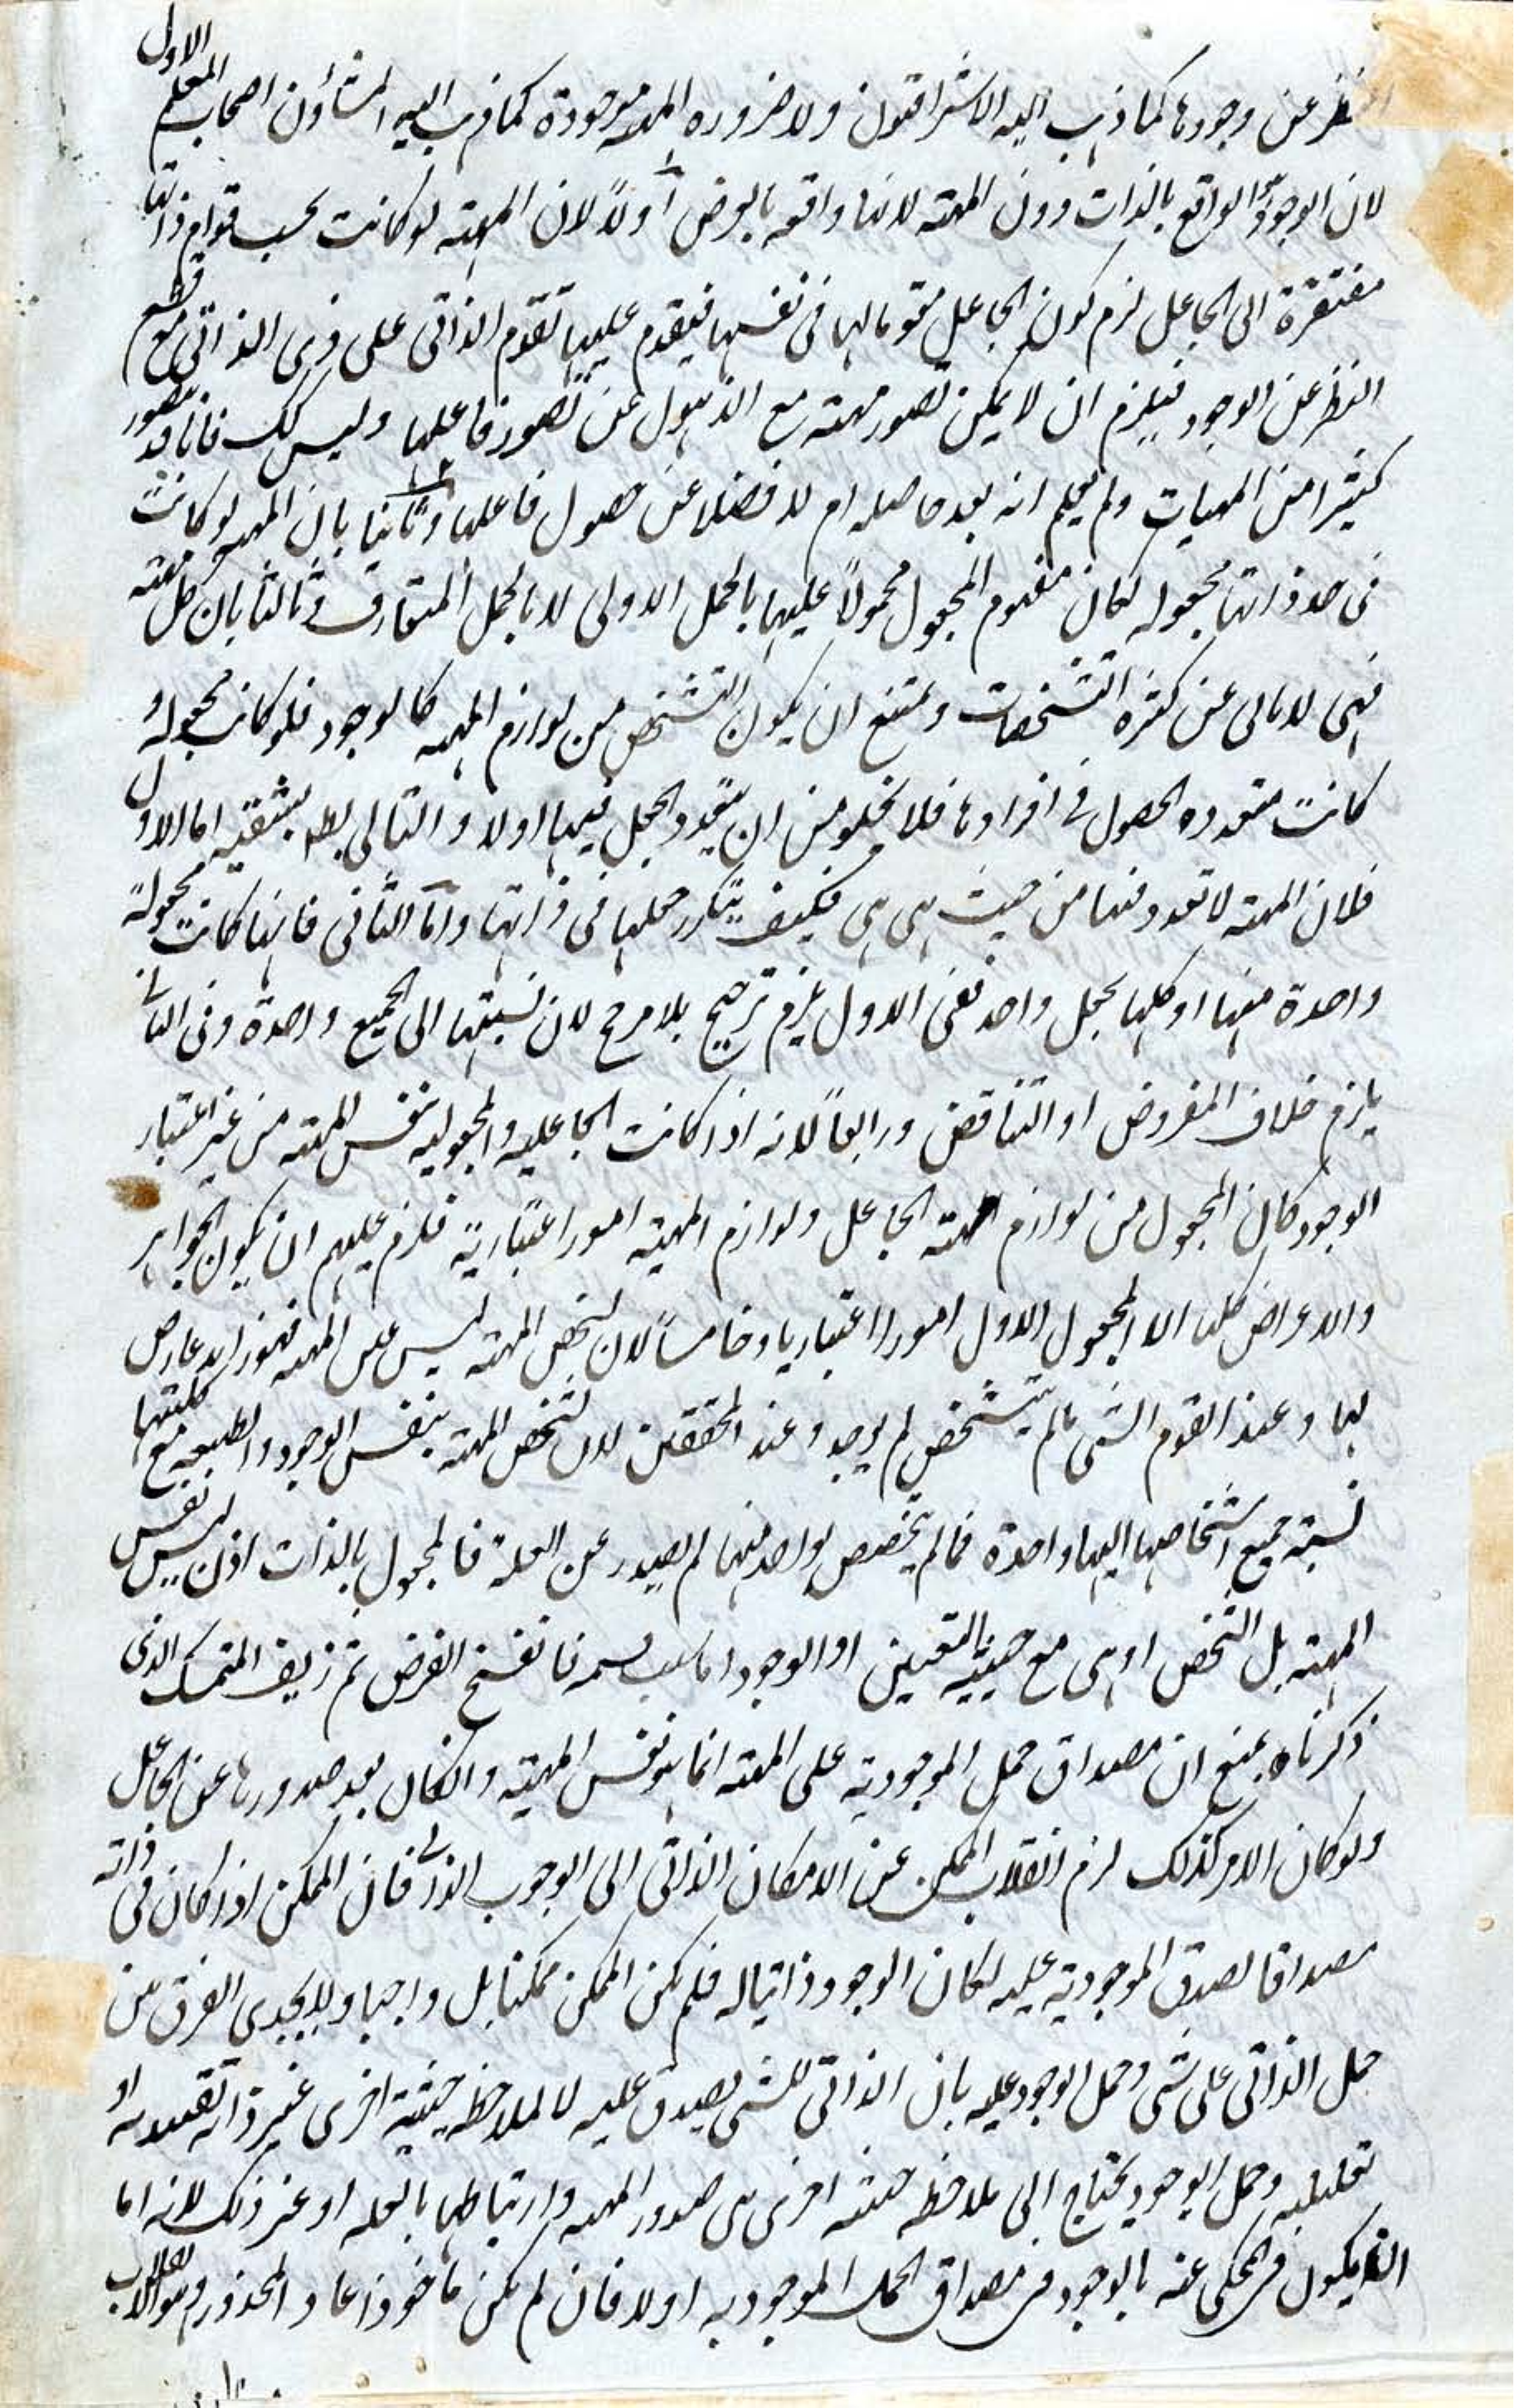 النظر عن وجودها كما ذهب اليه الاشراقيون ولا ضروره المهيه موجودة كما ذهب اليه المشاؤن اصحاب المعلم الاول
لان الوجود الواقع بالذات دون المهيته لانها واقعه بالعرض اولاً لان المهيته لو كانت بحسب قوام ذاتها
مفتقرة الى الجاعل لزم كون الجاعل مقوما لها فى نفسها فيتقدم عليها تقدم الذاتى على ذى الذاتى مع قطع
النظر عن الوجود فيلزم ان لا يمكن تصور مهيته مع الذهول عن تصور فاعلها وليس كك فانا قد نتصور
كثيرا من المهيات ولم يعلم انه بعد حاصله ام لا فضلا عن حصول فاعلها وثانيا بان المهيه لو كانت
فى حد ذاتها مجعوله لكان مفهوم المجعول محمولاً عليها بالحمل الاولى لا بالحمل المتعارف وثالثا بان كل مهيته
فهى لا تابى عن كثره التشخصات ويمتنع ان يكون التشخص من لوازم المهيه كالوجود فلو كانت مجعوله و
كانت متعدده الحصول فى افرادها فلا يخلو من ان يتعدد الجعل فيها اولا والتالى بط بشقيه اما الاول
فلان المهيته لا تعدد فيها من حيث هى هى فكيف يتكرر جعلها فى ذاتها واما الثانى فانها كانت مجعولةً
واحدة منها او كلها بجعل واحد ففى الاول يلزم ترجيح بلا مرجح لان نسبتها الى الجميع واحدة وفى الثانى
يلزم خلاف المفروض او التناقض ورابعاً لانه اذا كانت الجاعليه والمجعوليه بنفس المهيته من غير اعتبار
الوجود كان المجعول من لوازم مهيته الجاعل ولوازم المهيته امور اعتباريّة فلزم عليهم ان يكون الجواهر
والاعراض كلها الا المجعول الاول امورا اعتباريا وخامساً لان تشخص المهيته ليس عين المهيه فهو زايد عارض
لها وعند القوم الشى ما لم يتشخص لم يوجد وعند المحققين لان تشخص المهيته بنفس الوجود والطبيعه مع كليتها
نسبته جميع اشخاصها اليها واحدة فما لم يتخصص بواحد منها لم يصدر عن العلة فالمجعول بالذات اذن ليس نفس
المهيته بل التشخص او هى مع حيثيه التعين او الوجود فانفسخ الفرض ثم زيف المتمسك الذى
ذكرناه بمنع ان مصداق حمل الموجوديه على المهيته انما هو نفس المهيته وان كان بعد صدورها عن الجاعل
ولو كان الامر كذلك لزم انقلاب الممكن عن الامكان الذاتى الى الوجوب الذاتى فان الممكن اذا كان فى ذاته
مصداقا لصدق الموجوديه عليه لكان الوجود ذاتيا له فلم يكن الممكن ممكنا بل واجبا ولا يجدى الفرق من
حمل الذاتى على شى وحمل الوجود عليه بان الذاتى للشى يصدق عليه لا لملاحظه حيثية اخرى غير ذاته تقييديه او
تعليليه وحمل الوجود يحتاج الى ملاحظه حيثيه اخرى هى صدور المهيه وارتباطها بالعله او غير ذلك لانه اما
ان يكون المحكى عنه بالوجود فى مصداق الحمل الموجوديه اولا فان لم يكن ماخوذا عاد المحذور وهو الانقلاب